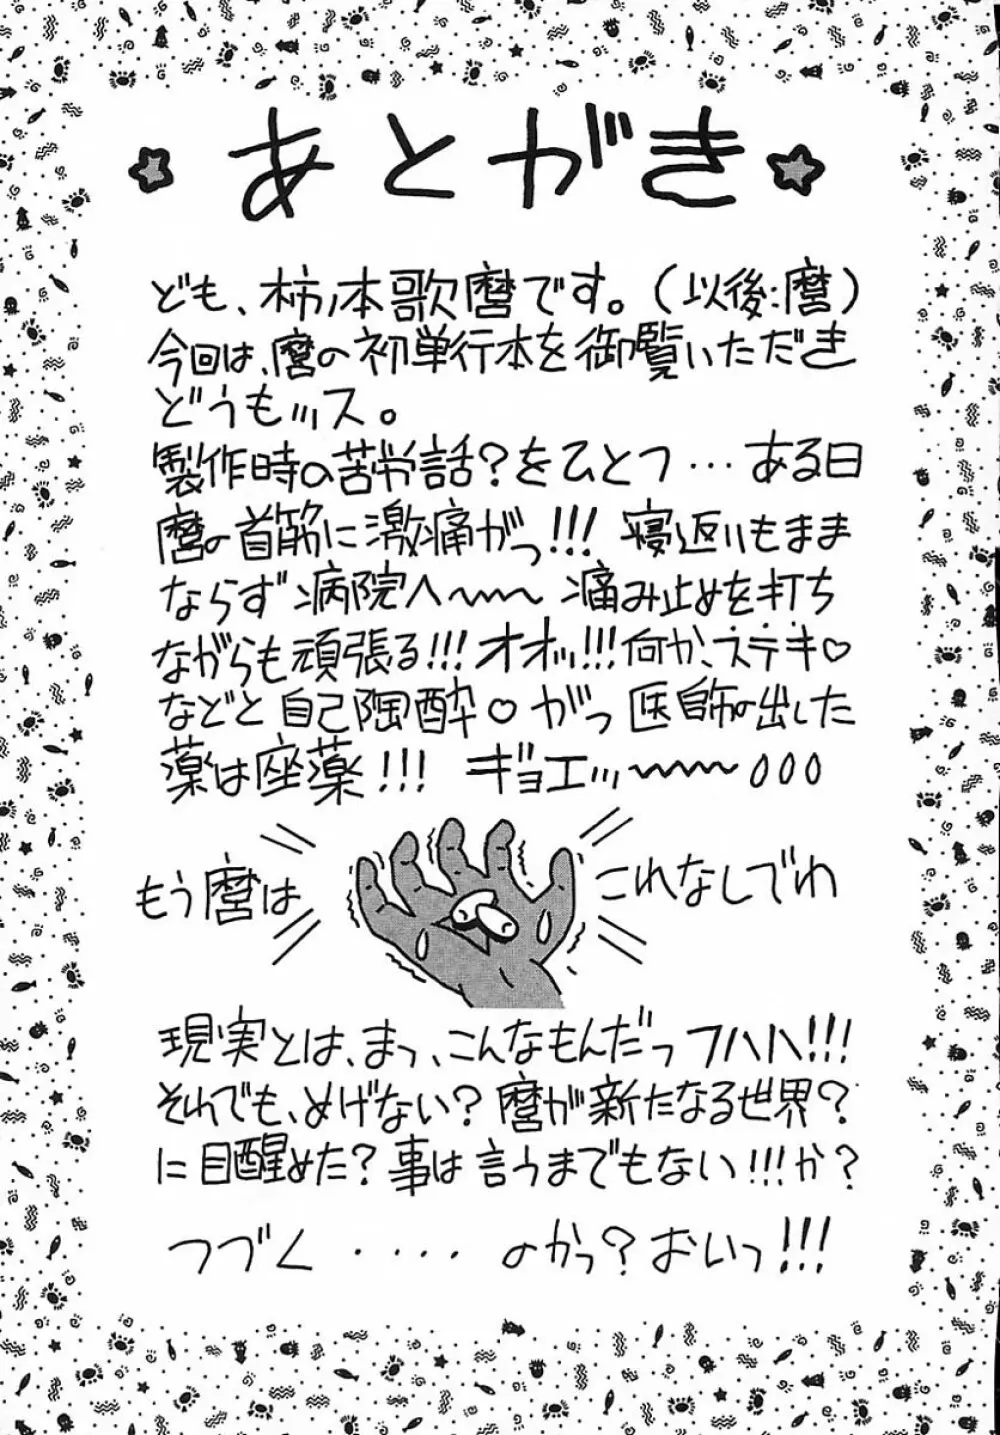 あとがき
ども、柿ノ本歌麿です。(以後:麿)
今回は、麿の初単行本を御覧いただき
どうもッス。
製作時の苦労話?をひとつ…ある日
麿の首筋に激痛がっ!!!寝返りもまま
ならず病院へ〜〜痛み止めを打ち
ながらも頑張る!!!オオッ!!!何か、ステキ♡
などと自己陶酔♡がっ医師の出した
薬は座薬!!!ギョエッ〜〜〜
もう麿は
これなしでわ
現実とは、まっ、こんなもんだっフハハ!!!
それでも、めげない?麿が新たなる世界?
に目醒めた?事は言うまでもない!!!か?
つづく・・・・のかっ?おいっ!!!